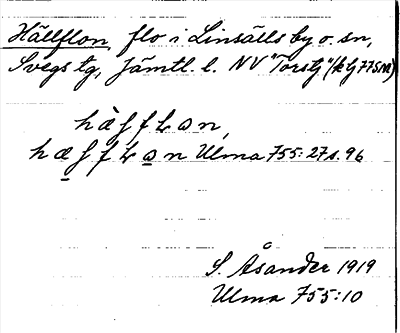 Hällflon, flo i Linsälls by o. sn,
Svegs tg, Jämtl. l. NV "Torsbj" (kbj 775m)
hàʃfⱡɷn,
hæʃfⱡɷn Ulma 755:27 s. 96
S. Åsander 1919
Ulma 755:10